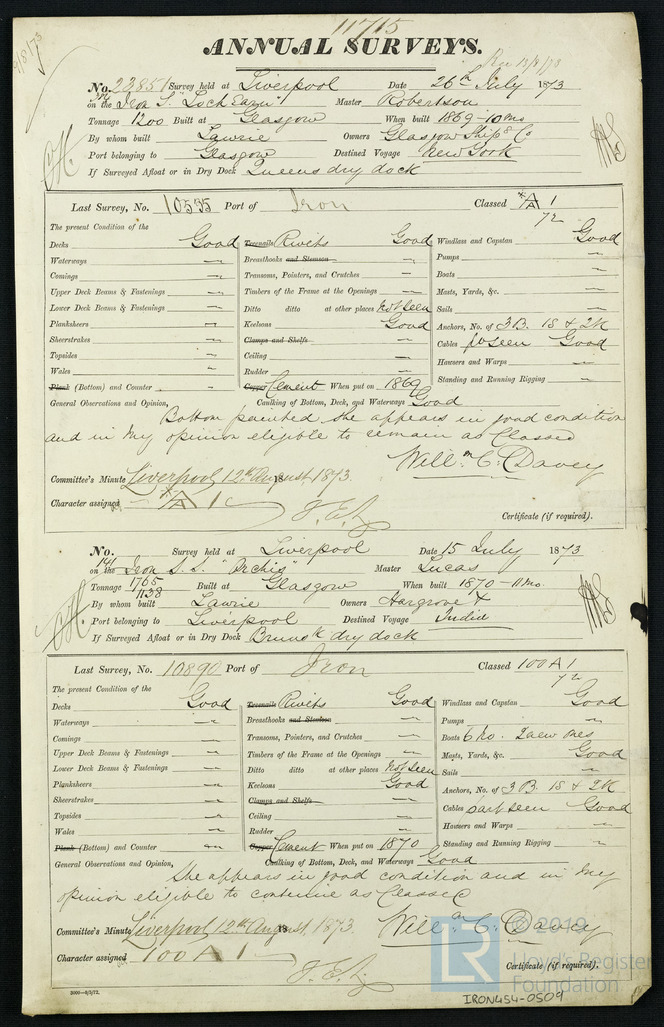 11715
9/8/73
ANNUAL SURVEYS.
Rec 13/8/73
No. 23851 Survey held at Liverpool Date 26th July 1873
on the Iron S. "Loch Earn" Master Robertson
Tonnage 1200 Built at Glasgow When built 1869-10mo
By whom built Lawrie Owners Glasgow Shipg Co
Port belonging to Glasgow Destined Voyage New York
If Surveyed Afloat or in Dry Dock Queens dry dock
Last Survey, No. 10535 Port of Iron Classed A 1
72
The present Condition of the
Decks Good Treenails Rivets Good Windlass and Capstan Good
Waterways " Breasthooks and Stemson " Pumps "
Comings " Transoms, Pointers, and Crutches " Boats "
Upper Deck Beams & Fastenings " Timbers of the Frame at the Openings " Masts, Yards, &c. "
Lower Deck Beams & Fastenings " Ditto ditto at other places Not Seen Sails "
Planksheers " Keelsons Good Anchors, No. of 3B. 1S & 2K
Sheerstrakes " Clamps and Shelfs Cables pt seen Good
Topsides " Ceiling " Hawsers and Warps "
Wales " Rudder " Standing and Running Rigging "
Plank (Bottom) and Counter " Copper Cement When put on 1869
General Observations and Opinion, Caulking of Bottom, Deck, and Waterways Good
Bottom painted, she appears in good condition
and in my opinion eligible to remain as Classed
Willm. C. Davey
Committee's Minute Liverpool 12th August 1873.
Character assigned A 1
Certificate (if required).
No. Survey held at Liverpool Date 15 July 1873
on the Iron S.S. "Orchis" Master Lucas
Tonnage 1765 Built at Glasgow When built 1870-11mo.
1138
By whom built Lawrie Owners Hargrove &
Port belonging to Liverpool Destined Voyage India
If Surveyed Afloat or in Dry Dock Brunsk dry dock
Last Survey, No. 10890 Port of Iron Classed 100 A 1
72
The present Condition of the
Decks Good Treenails Rivets Good Windlass and Capstan Good
Waterways " Breasthooks and Stemson " Pumps "
Comings " Transoms, Pointers, and Crutches " Boats 6 No. 2 new ones
Upper Deck Beams & Fastenings " Timbers of the Frame at the Openings " Masts, Yards, &c. Good
Lower Deck Beams & Fastenings " Ditto ditto at other places Not Seen Sails "
Planksheers " Keelsons Good Anchors, No. of 3B. 1S & 2K
Sheerstrakes " Clamps and Shelfs Cables part seen Good
Topsides " Ceiling " Hawsers and Warps "
Wales " Rudder " Standing and Running Rigging "
Plank (Bottom) and Counter " Copper Cement When put on 1870
General Observations and Opinion, Caulking of Bottom, Deck, and Waterways Good
She appears in good condition and in my
opinion eligible to continue as Classed
Willm. C. Davey
Committee's Minute Liverpool 12th August, 1873.
Character assigned 100 A 1
Certificate (if required).
LR © 2019
Lloyd's Register
Foundation
IRON454-0509